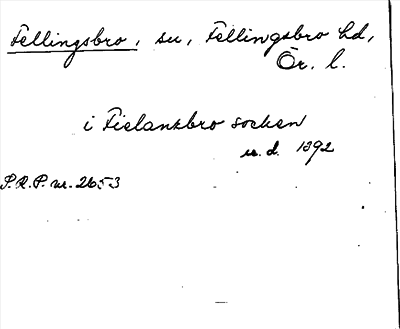 Fellingsbro, sn, Fellingsbro hd,
Ör. l.
i Fielanzbro socken
u. d. 1392
P.R.P. nr. 2653